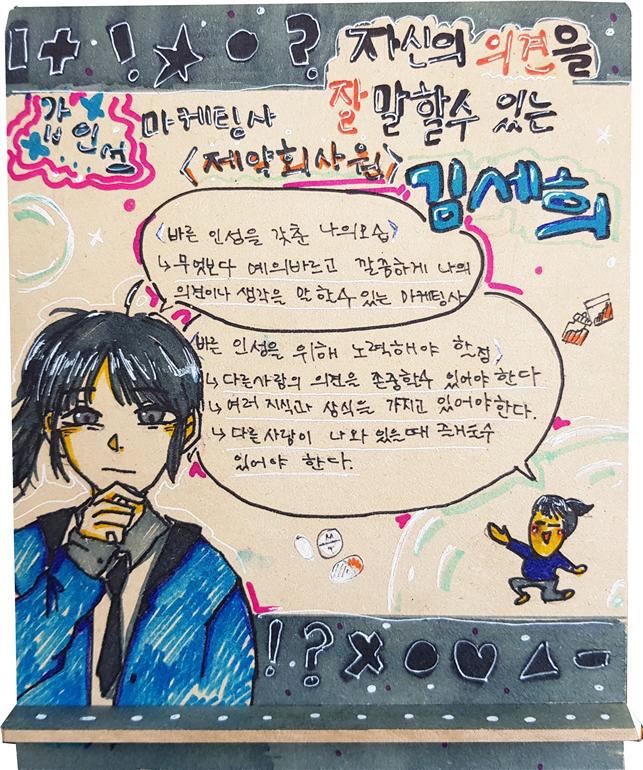 ! + ! ?
자신의 의견을
잘 말할수 있는
갑인성
마케팅사
<제약회사원>
김세희
<바른 인성을 갖춘 나의모습>
↳ 무엇보다 예의바르고 깔끔하게 나의
의견이나 생각을 말할수 있는 마케팅사
<바른 인성을 위해 노력해야 할점>
↳ 다른사람의 의견을 존중할수 있어야 한다
↳ 여러 지식과 상식을 가지고 있어야한다.
↳ 다른 사람이 나와 있을때 즐거울수
있어야 한다.
M
! ?